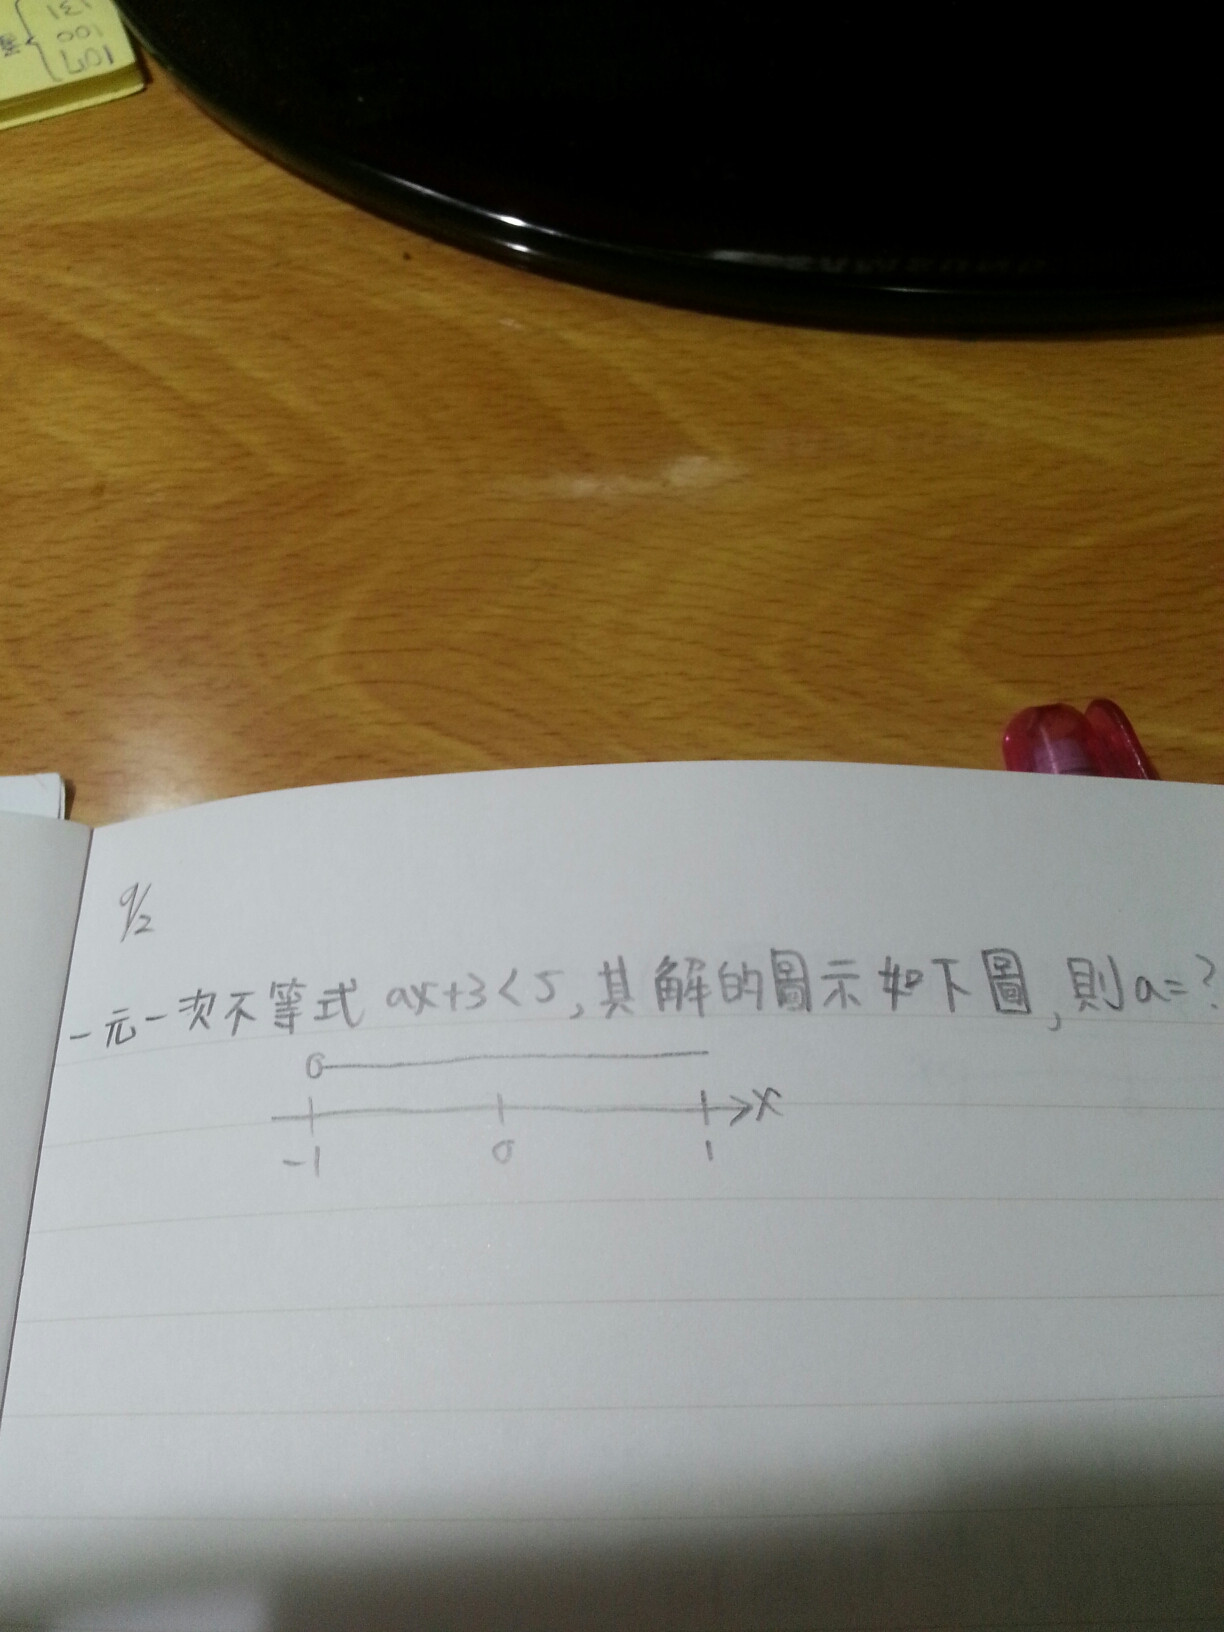 131
100
107
9/2
一元一次不等式 ax+3<5,其解的圖示如下圖,則a=?
x
-1 0 1